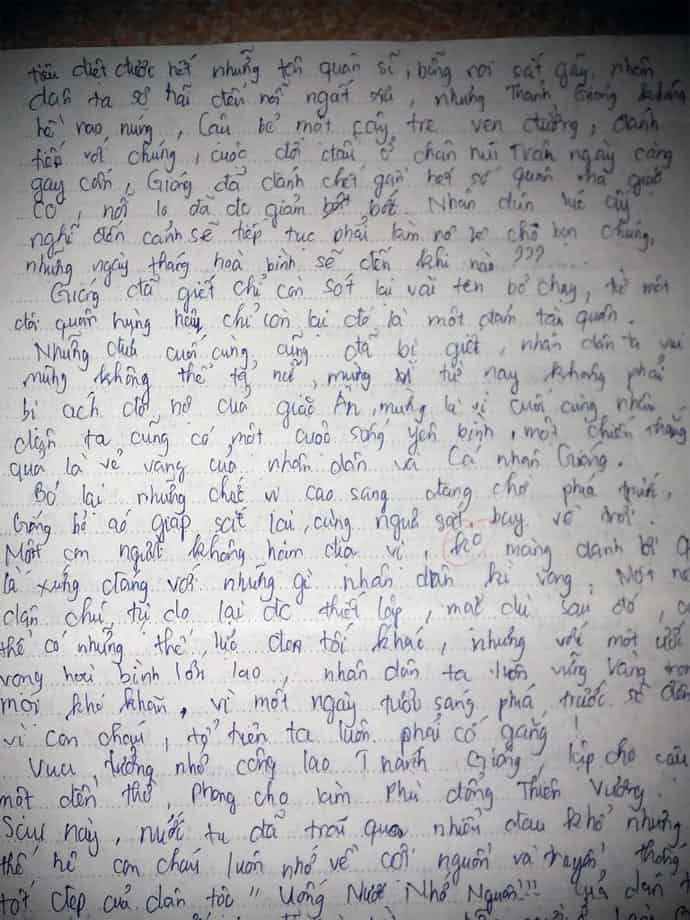 tiêu diệt được hết những tên quân sĩ, bỗng roi sắt gãy, nhân
dân ta sợ hãi đến nỗi ngất xỉu, nhưng Thánh Gióng không
hề nao núng, Cậu bẻ một cây tre ven đường, đánh
tiếp với chúng, cuộc đối đầu ở chân núi Trâu ngày càng
gay cấn, Gióng đã đánh chết gần hết số quân mà giặc
có, nỗi lo đã dc giảm bớt bớt. Nhân dân lúc ấy
nghĩ đến cảnh sẽ tiếp tục phải làm nô lệ cho bọn chúng,
những ngày tháng hoà bình sẽ đến khi nào ???
Gióng đã giết chỉ còn sót lại vài tên bỏ chạy, từ một
đội quân hùng hậu, chỉ còn lại đó là một đám tàn quân.
Những đứa cuối cùng cũng đã bị giết, nhân dân ta vui
mừng không thể tả nổi, mừng vì từ nay không phải
bị ách đô hộ của giặc Ân, mừng là vì cuối cùng nhân
dân ta cũng có một cuộc sống yên bình, một chiến thắng
quả là vẻ vang của nhân dân và Cá nhân Gióng.
Bỏ lại những chức vị cao sang đang chờ phía trước,
Gióng bỏ áo giáp sắt lại, cùng ngựa sắt bay về trời.
Một con người không ham địa vị, ko màng danh lợi
là xứng đáng với những gì nhân dân kì vọng. Một
dân chủ, tự do lại dc thiết lập, mặc dù sau đó,
thể có những thế lực đen tối khác, nhưng với một ước
vọng hoà bình lớn lao, nhân dân ta luôn vững vàng
mọi khó khăn, vì một ngày tươi sáng phía trước sẽ đến
vì con cháu, tổ tiên ta luôn phải cố gắng !
Vua, tưởng nhớ công lao Thánh Gióng, lập cho cậu
một đền thờ, phong cho làm Phù đổng Thiên Vương.
Sau này, nước ta đã trải qua nhiều đau khổ nhưng
thế hệ con cháu luôn nhớ về cội nguồn và truyền thống
tốt đẹp của dân tộc " Uống Nước Nhớ Nguồn!!! của dân